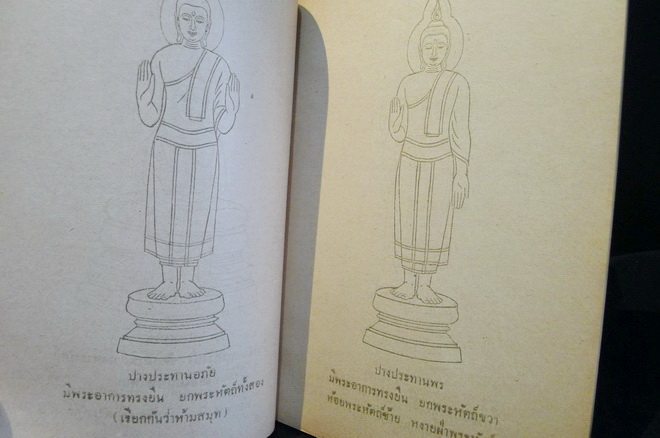 ปางประทานอภัย
มีพระอาการทรงยืน ยกพระหัตถ์ทั้งสอง
(เรียกกันว่าห้ามสมุท)
ปางประทานพร
มีพระอาการทรงยืน ยกพระหัตถ์ขวา
ห้อยพระหัตถ์ซ้าย หงายฝ่าพระหัตถ์